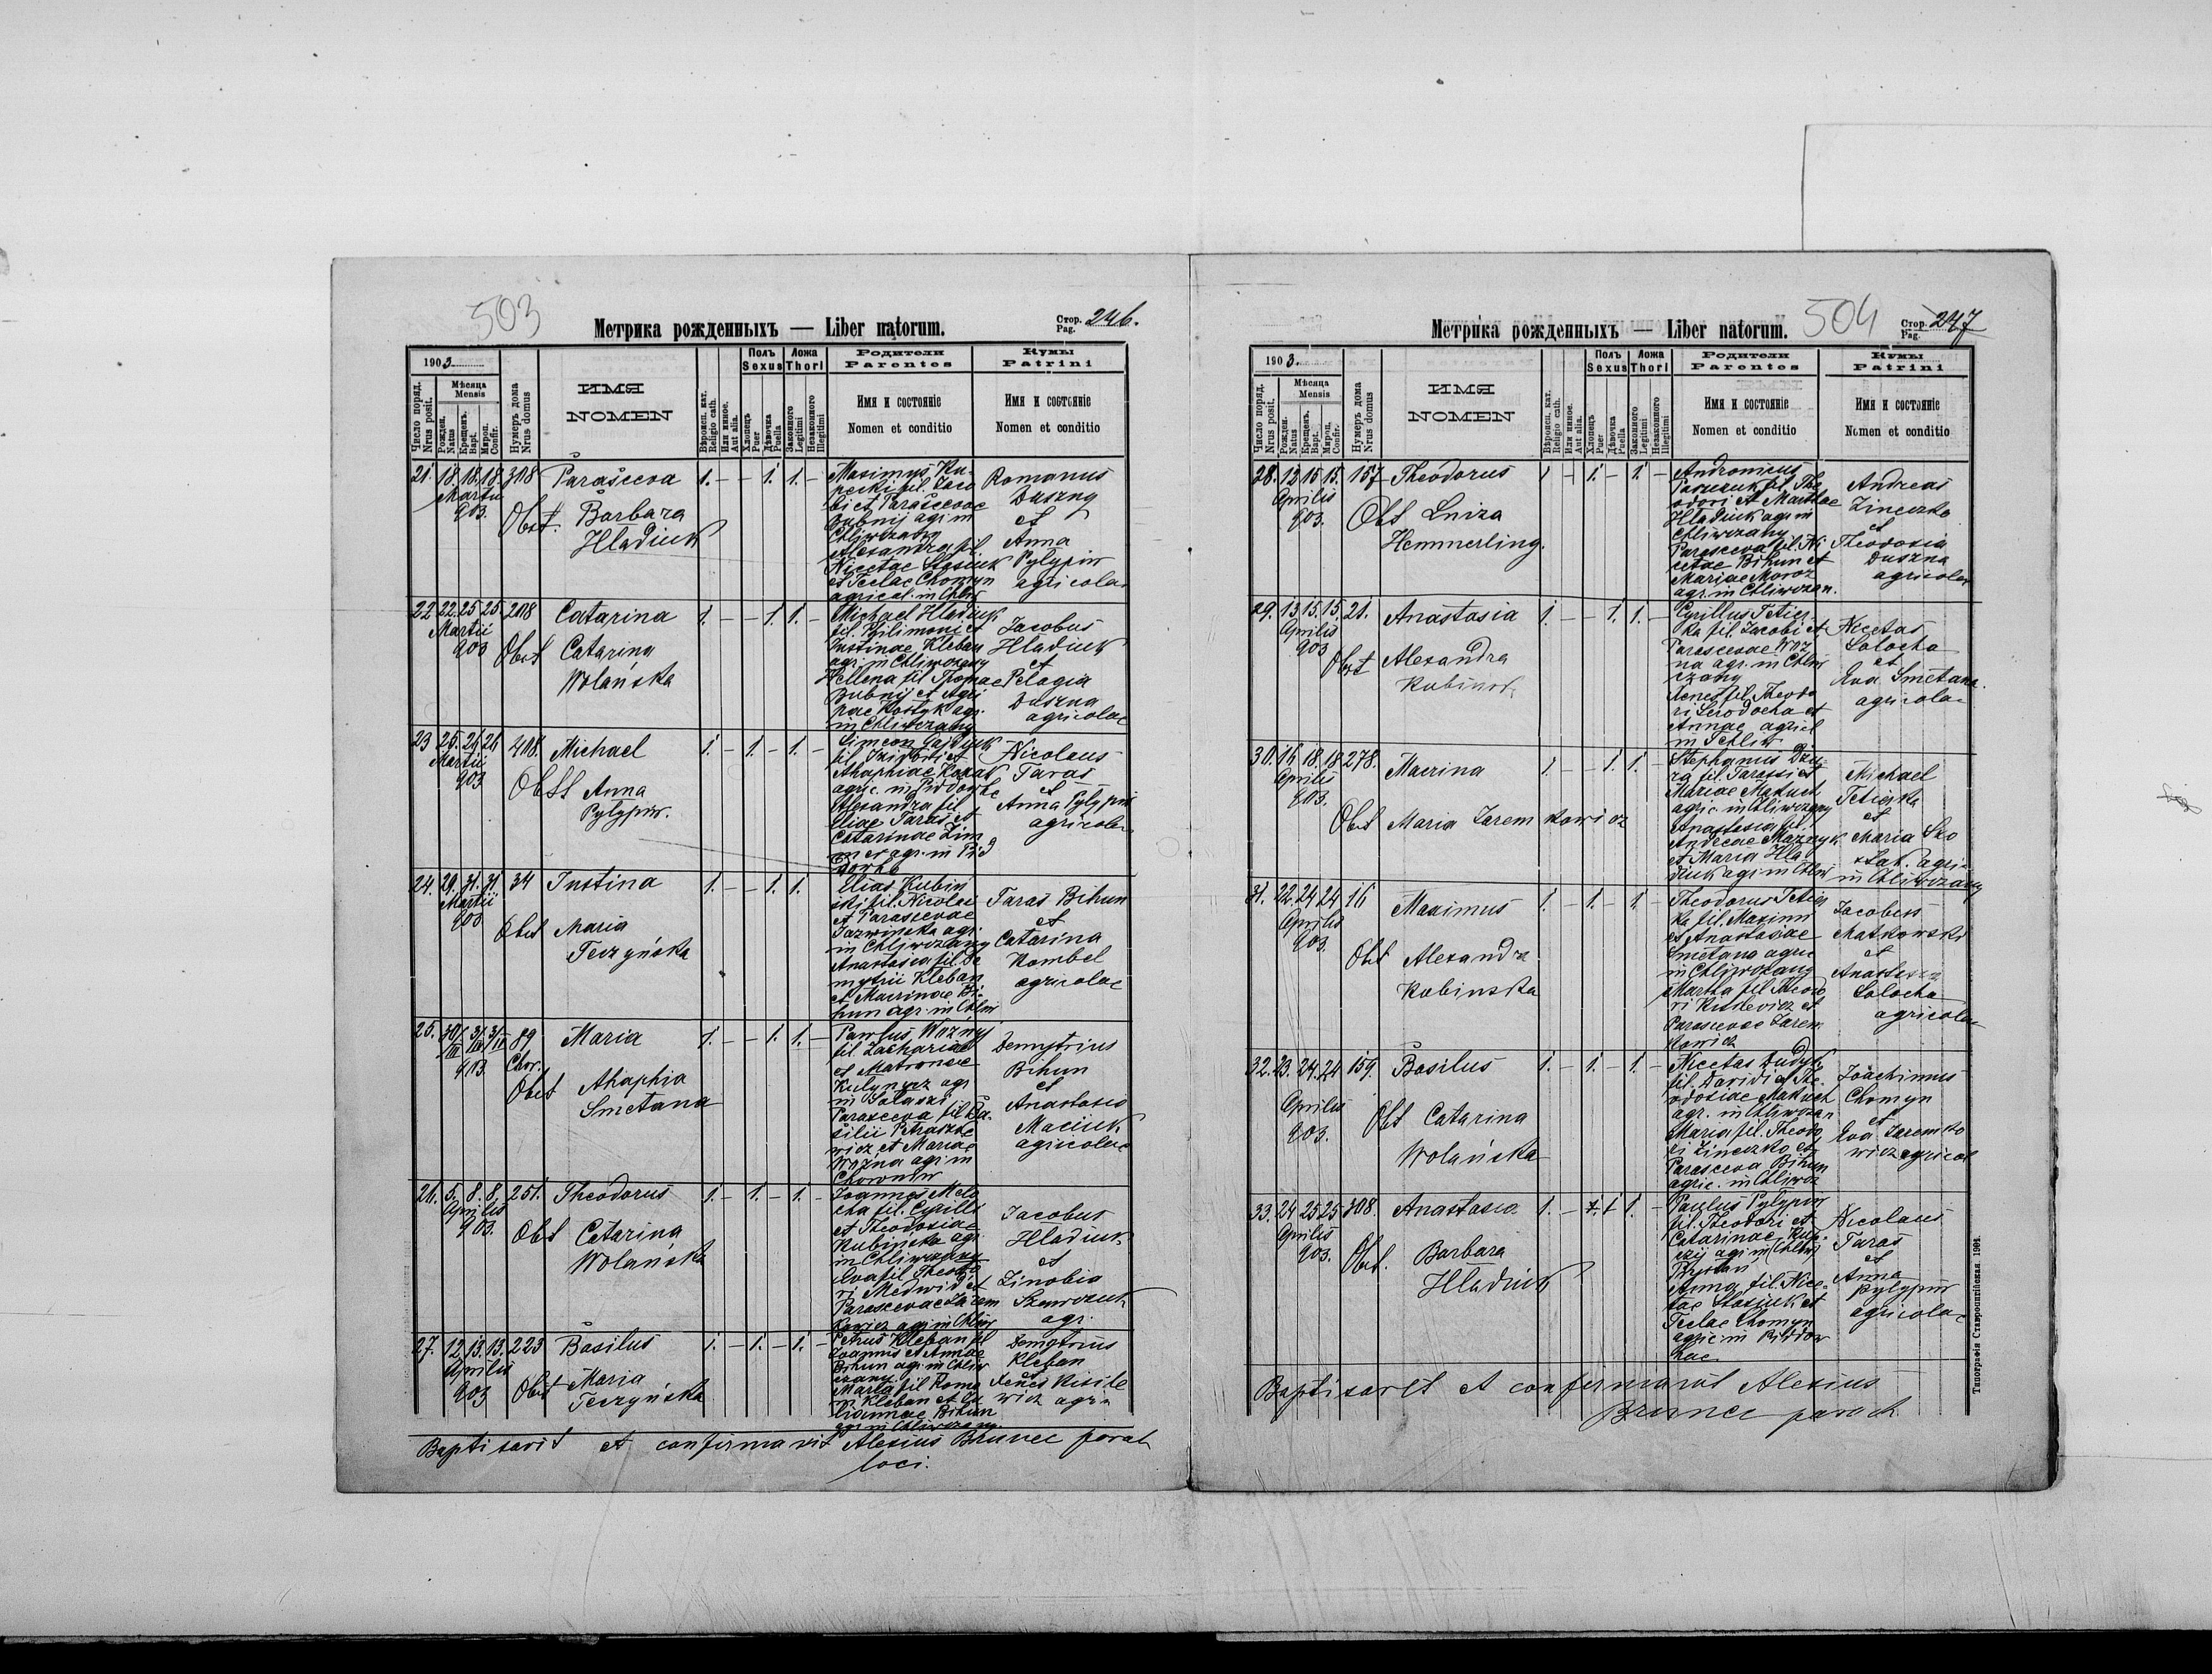 503
Метрика рожденныхъ — Liber natorum.
Стор. Pag. 246.
1903
Число поряд. Nrus posit.
Мѣсяца Mensis
Рожден. Natus
Крещенъ. Bapt.
Мѵроп. Confir.
Нумеръ дома Nrus domus
ИМЯ
NOMEN
Вѣроисп. кат. Religio cath.
Или инное. Aut alia.
Полъ
Sexus
Хлопецъ Puer
Дѣвочка Puella
Ложа
Thori
Законного Legitimi
Незаконного Illegitimi
Родители
Parentes
Имя и состоянiе
Nomen et conditio
Кумы
Patrini
Имя и состоянiе
Nomen et conditio
21. 18. 18. 18. Martii 903. 308
Parasceva
Obst. Barbara
Hladiuk
1. – – 1. 1. –
Maximus Ku-
fil. Jaco
bi et Parascevae
Bubnij agr. in
Chliwczany
Alexandra fil.
Nicetae Stasiuk
et Teclae Chomyn
agricol. in Chliw
Romanus
Duszny
et
Anna
Pylypiw
agricolae
22 22. 25. 25 Martii 903 208
Catarina
Obst Catarina
Wolańska
1. – – 1. 1. –
Michael Hladiuk
fil. Filimoni et
Justinae Kleban
agr. in Chliwczany
Hellena fil Thomae
Bubnij et Agri
pae Kostyk agr.
in Chliwczany
Jacobus
Hladiuk
et
Pelagia
Duszna
agricolae
23 25. 26. 26 Martii 903 408.
Michael
Obst Anna
Pylypiw.
1. – 1. – 1. –
Simeon
fil.
Ahaphiae Kozak
agric. in
Alexandra fil.
Eliae Taras et
Catarinae Zim
mer agr. in Pid
Nicolaus
Taras
et
Anna Pylypiw
agricolae
24. 29. 31. 31. Martii 903 34
Justina
Obst Maria
Teczyńska
1. – – 1. 1.
Elias Kubin
ski fil. Nicolai
et Parascevae
Jazwinska agr.
in Chliwczany
Anastasia fil. De
mytrii Kleban
et Macrinae Bi-
hun agr. in Chliw
Taras Bihun
et
Catarina
Kombel
agricolae
25. 30/III 31/III 31/III 903 89 Chor.
Maria
Obst Ahaphia
Smetana
1. – – 1. 1. –
Pawlus Wozny
fil. Zachariae
et Matronae
Kulynycz agr
in Salaszi
Parasceva fil. Ba-
silii Petraszke
wicz et Mariae
Wozna agr. in
Demytrius
Bihun
et
Anastasia
Maciuk
agricolae
26. 5. 8. 8. Aprilis 903. 251.
Theodorus
Obst Catarina
Wolańska
1. – 1. – 1. –
Joannes
fil. Cyrilli
et Theodosiae
Kubińska agr.
in Chliwczany
Eva fil. Theodo
ri Medwid et
Parascevae Zarem
kowicz agr. in Chliw
Jacobus
Hladiuk
et
Zinobia
Szewczuk
agr.
27. 12. 13. 13. Aprilis 903 223
Basilus
Obst Maria
Teczyńska
1. – 1. – 1. –
Petrus Kleban fil
Joannis et Annae
Bihun agr. in Chliw
czany
Marta fil Roma
ni Kleban et Ju
liannae Bihun
agr. in Chliwczany
Demytrius
Kleban
et
Xenes Kisile
wicz agri
Baptisavit et confirmavit Alexius Brunec paroch
loci.
504
Метрика рожденныхъ — Liber natorum.
Стор. Pag. 247
1903.
Число поряд. Nrus posit.
Мѣсяца Mensis
Рожден. Natus
Крещенъ. Bapt.
Мѵроп. Confir.
Нумеръ дома Nrus domus
ИМЯ
NOMEN
Вѣроисп. кат. Religio cath.
Или инное. Aut alia.
Полъ
Sexus
Хлопецъ Puer
Дѣвочка Puella
Ложа
Thori
Законного Legitimi
Незаконного Illegitimi
Родители
Parentes
Имя и состоянiе
Nomen et conditio
Кумы
Patrini
Имя и состоянiе
Nomen et conditio
28. 12 15 15. Aprilis 903. 157
Theodorus
Obst Luiza
Hemmerling.
1 – 1. – 1. –
Andronicus
fil. The
odori et Marthae
Hladiuk agr. in
Chliwczany
Parasceva fil. Ni
cetae Bihun et
Mariae Moroz
agr. in Chliwczan.
Andreas
Zinczko
et
Theodosia
Duszna
agricolae
29. 13. 15. 15. Aprilis 903 21.
Anastasia
Obst Alexandra
Kubinsk
1. – – 1. 1. –
Cyrillus Tetier
ka fil. Jacobi et
Parascevae Woz
na agr. in Chliw
czany
Xenes fil. Theodo
ri et
Annae agricl
in Chliw
Nicetas
Solocha
et
Eva Smetana.
agricolae
30. 16 18. 18 Aprilis 903. 278.
Macrina
Obst Maria Zaremkowicz
1. – – 1. 1. –
Stephanus Dzu
ra fil. Tarasi et
Mariae Makuch
agric. in Chliwczany
Anastasia fil.
Andreae Maznyk
et Maria Hla-
diuk agr. in Chliw
Michael
Tetierka
et
Maria
agri-
in Chliwczany
31. 22. 24. 24 Aprilis 903. 16
Maximus
Obst Alexandra
Kubinska
1. – 1. – 1. –
Theodorus Tetier
ka fil. Maximi
et Anastasiae
Smetana agric
in Chliwczany
Martha fil. Theodo
ri Kisilewicz et
Parascevae Zarem
kowicz
Jacobus
Matkowski
et
Anastasia
Solocha
agricolae
32. 23. 24. 24 Aprilis 903. 159.
Basilus
Obst Catarina
Wolańska
1. – 1. – 1. –
Nicetas Dudyk
fil. Davidi et The-
odosiae Makuch
agr. in Chliwczan
Maria fil. Theodo
ri Zinczko et
Parasceva Bihun
agric. in Chliwcz
Joachimus
Chomyn
et
Eva Zaremko
wicz agricol
33. 24 25 25 Aprilis 903. 308.
Anastasia
Obst. Barbara
Hladiuk
1. – 1 1. –
Paulus Pylypiw
fil. Theodori et
Catarinae
agr. in Chliw
Anna fil. Nice-
tae Stasiuk et
Teclae Chomyn
agric. in
Nicolaus
Taras
et
Anna
Pylypiw
agricolae
Baptisavit et confirmavit Alexius
Brunec paroch
Типографія Ставропигійская 1901.